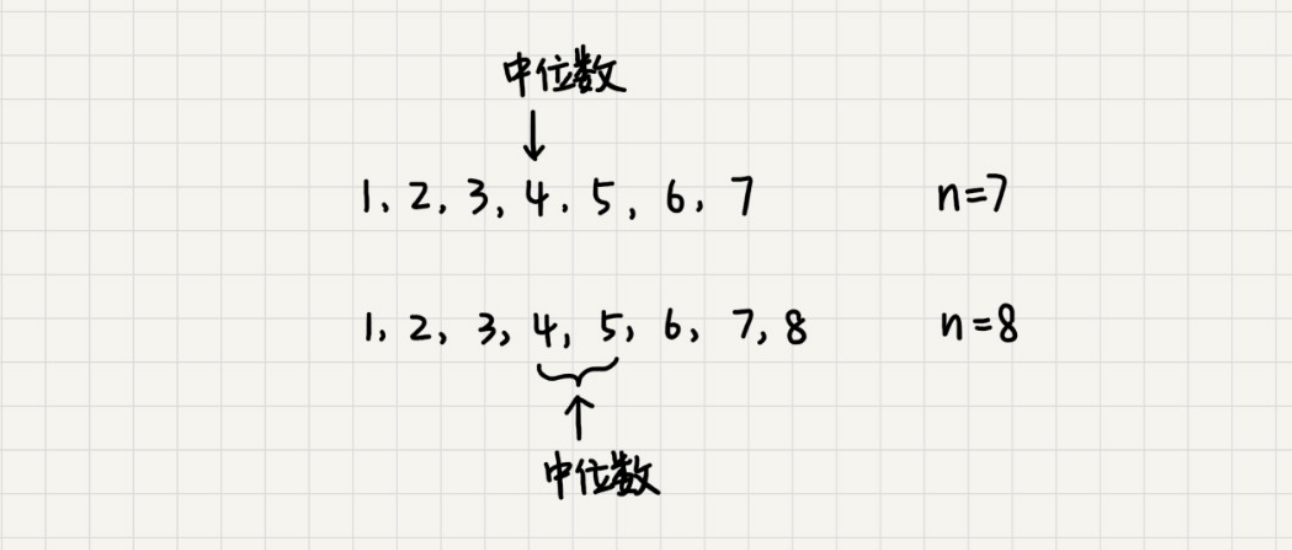 中位数
1, 2, 3, 4, 5, 6, 7 n=7
1, 2, 3, 4, 5, 6, 7, 8 n=8
中位数